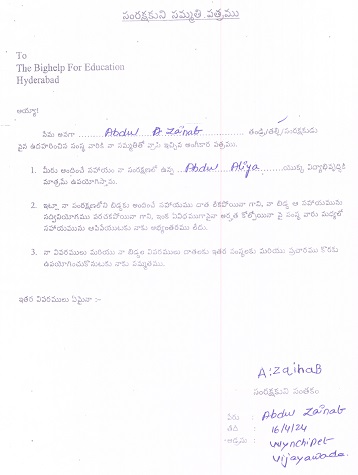 సంరక్షకుని సమ్మతి పత్రము
To
The Bighelp For Education
Hyderabad
అయ్యా!
నేను అనగా Abdul A Zainab తండ్రి/తల్లి/సంరక్షకుడు
పైన ఉదహరించిన సంస్థ వారికి నా సమ్మతితో వ్రాసి ఇచ్చిన అంగీకార పత్రము.
1. మీరు అందించే సహాయం నా సంరక్షణలో ఉన్న Abdul Aliya యొక్క విద్యాభివృద్ధికి
మాత్రమే ఉపయోగిస్తాను.
2. ఇట్లా నా సంరక్షణలోని బిడ్డకు అందించే సహాయము దాత లేకపోయినా గాని, నా బిడ్డ ఆ సహాయమును
సద్వినియోగము పరచకపోయినా గాని, ఇంక ఏవిధముగానైనా అర్హత కోల్పోయినా పై సంస్థ వారు మధ్యలో
సహాయమును ఆపివేయుటకు నాకు అభ్యంతరము లేదు.
3. నా వివరములు మరియు నా బిడ్డల వివరములు దాతలకు ఇతర సంస్థలకు మరియు ప్రచారము కొరకు
ఉపయోగించుకొనుటకు నాకు సమ్మతము.
ఇతర వివరములు ఏమైనా :-
A. Zainab
సంరక్షకుని సంతకం
పేరు : Abdul Zainab
తేది : 16/4/24
అడ్రసు : Wynchipet
Vijayawada.